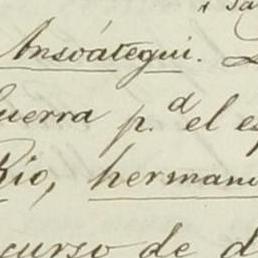 Ansoátegui.
uerra p.d el es
Rio, herman
curso de d